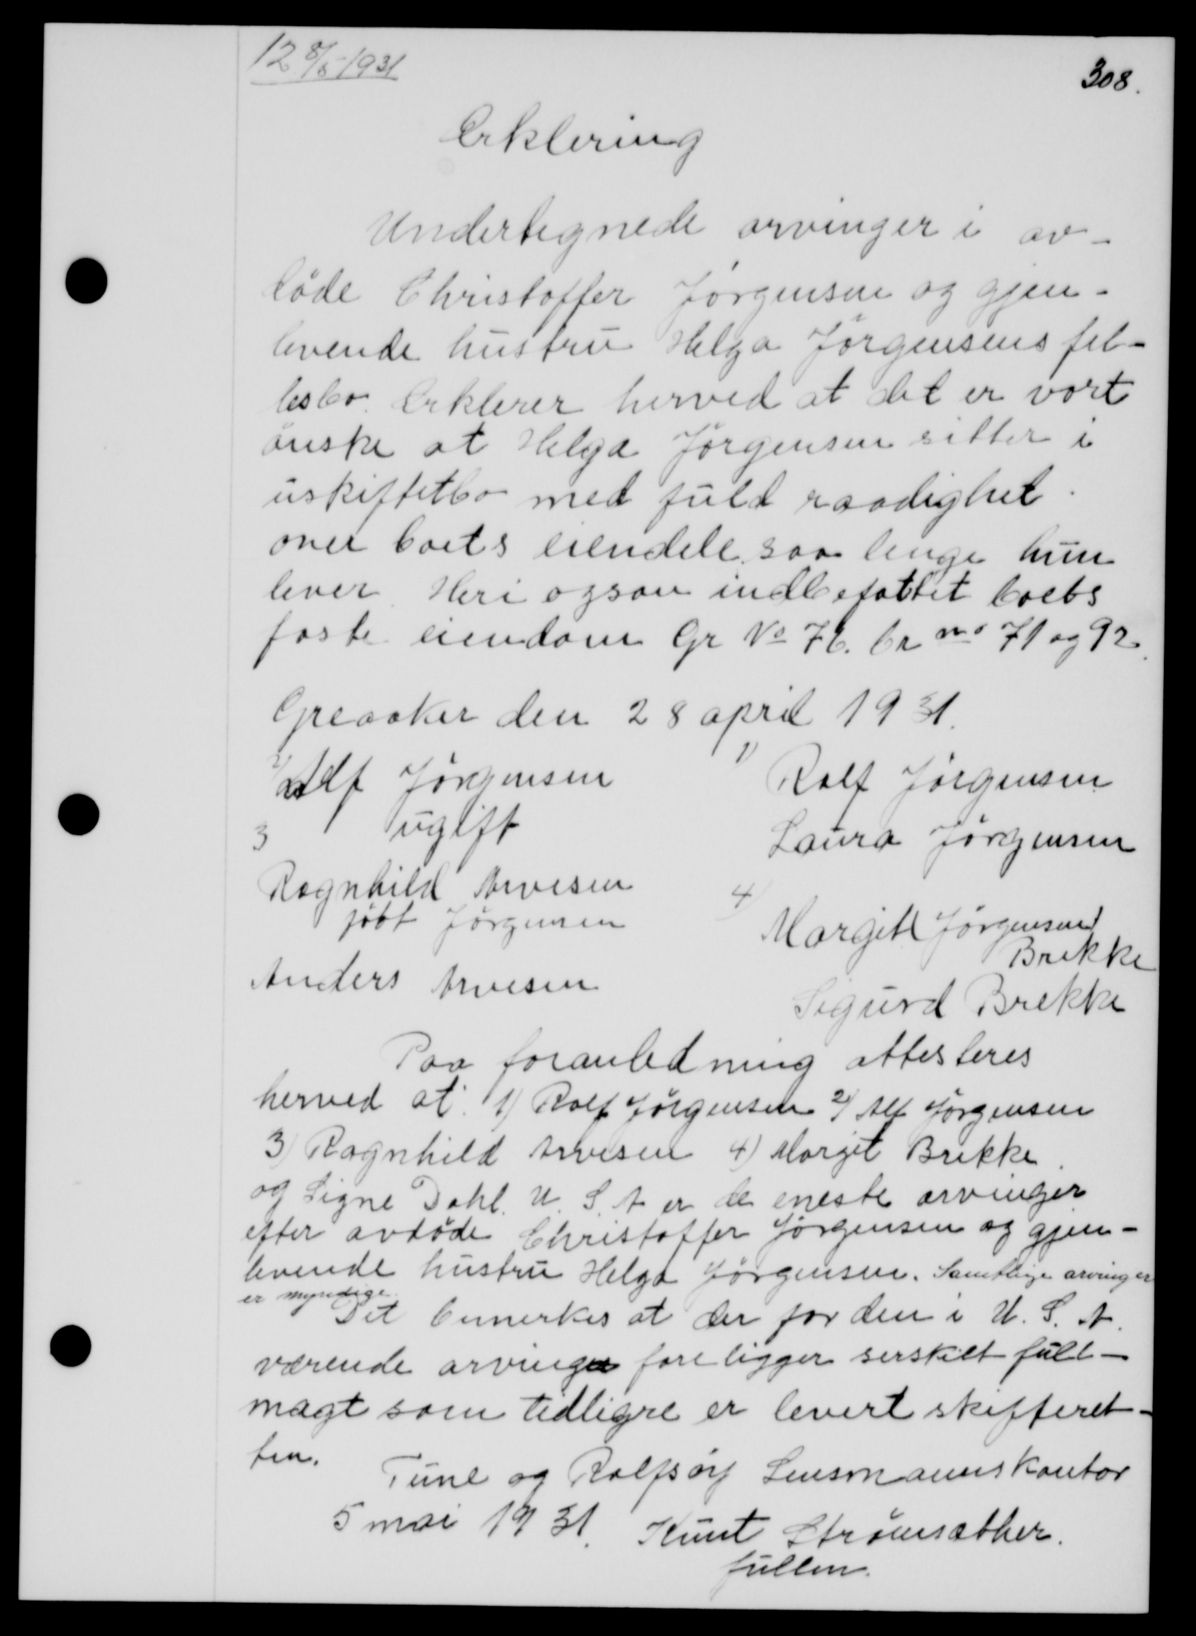 12 8/5-1931
308.
Erklering
Undertegnede arvinger i av-
döde Christoffer Jörgensen og gjen-
levende hustru Helga Jörgensens fel-
lesbo. Erklerer herved at det er vort
önske at Helga Jörgensen sitter i
uskiftetbo med fuld raadighet
over boets eiendele saa lenge hun
lever. Heri ogsaa indbefattet boets
faste eiendom Gr No 76. br no 71 og 92.
Greaaker den 28 april 1931.
2) Alf Jörgensen
ugift
1) Rolf Jörgensen
Laura Jörgensen
3
Ragnhild Arvesen
född Jörgensen
Anders Arvesen
4)
Margit Jörgensen
Brekke
Sigurd Brekke
Paa foranledning attesteres
herved at: 1) Rolf Jörgensen 2) Alf Jörgensen
3) Ragnhild Arvesen 4) Margit Brekke
og Signe Dahl. U. S. A er de eneste arvinger
efter avdöde Christoffer Jörgensen og gjen-
levende hustru Helga Jörgensen. Samtlige arvinger
er myndige.
Det bemerkes at der for den i U. S. A.
værende arving foreligger serskilt full-
magt som tidligre er levert skifteret-
ten.
Tune og Rolfsöy Lensmannskontor
5 mai 1931. Knut Strömsæther.
fullm.